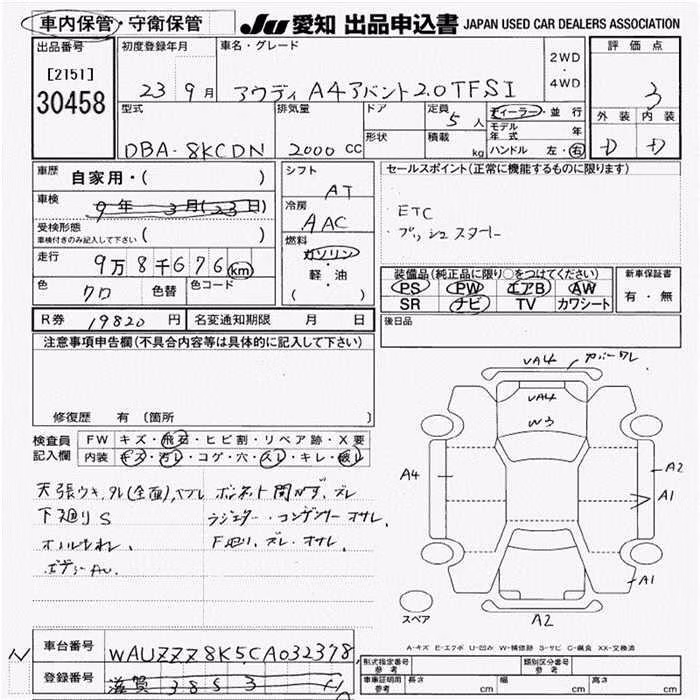 車内保管・守衛保管
JU 愛知 出品申込書 JAPAN USED CAR DEALERS ASSOCIATION
出品番号
[2151]
30458
初度登録年月
23 9月
車名・グレード
アウディ A4アバント 2.0TFSI
2WD
・
4WD
評価点
3
外装 内装
D D
型式
DBA-8KCDN
排気量
2000 CC
ドア
形状
定員
5人
積載
kg
ディーラー・並行
モデル年式 年
ハンドル 左・右
車歴
自家用・( )
車検
9年 3月(23日)
受検形態
車検付きのみ記入して下さい
( )
走行
9万8千676 km
色
クロ
色替
色コード
シフト
AT
冷房
AAC
燃料
ガソリン
・
軽・油
( )
セールスポイント(正常に機能するものに限ります)
・ETC
・プッシュスタート
装備品(純正品に限り○をつけてください)
PS PW エアB AW
SR ナビ TV カワシート
新車保証書
有・無
R券 19820円
名変通知期限 月 日
後日品
注意事項申告欄(不具合内容等は具体的に記入して下さい)
修復歴 有 〔箇所 〕
検査員記入欄
FW キズ・飛石・ヒビ割・リペア跡・X要
内装 キズ・汚レ・コゲ・穴・スレ・キレ・破レ
天張ウキ、タレ(全面)、ヤブレ
下廻りS
オイルもれ、
ボディーAU.
ボンネット間カゲ、ズレ
ラジエター・コンデンサーオサレ、
F廻り、ズレ・オサレ、
UA4 カバーワレ
UA4
W3
A4
A2
A1
A1
A2
スペア
A-キズ E-エクボ U-凹み W-補修跡 S-サビ C-腐食 XX-交換済
車台番号
WAUZZZ8K5CA032378
登録番号
滋賀 385 3
形式指定番号
参考
類別区分番号
参考
車庫証明用
参考
長さ cm 幅 cm 高さ cm